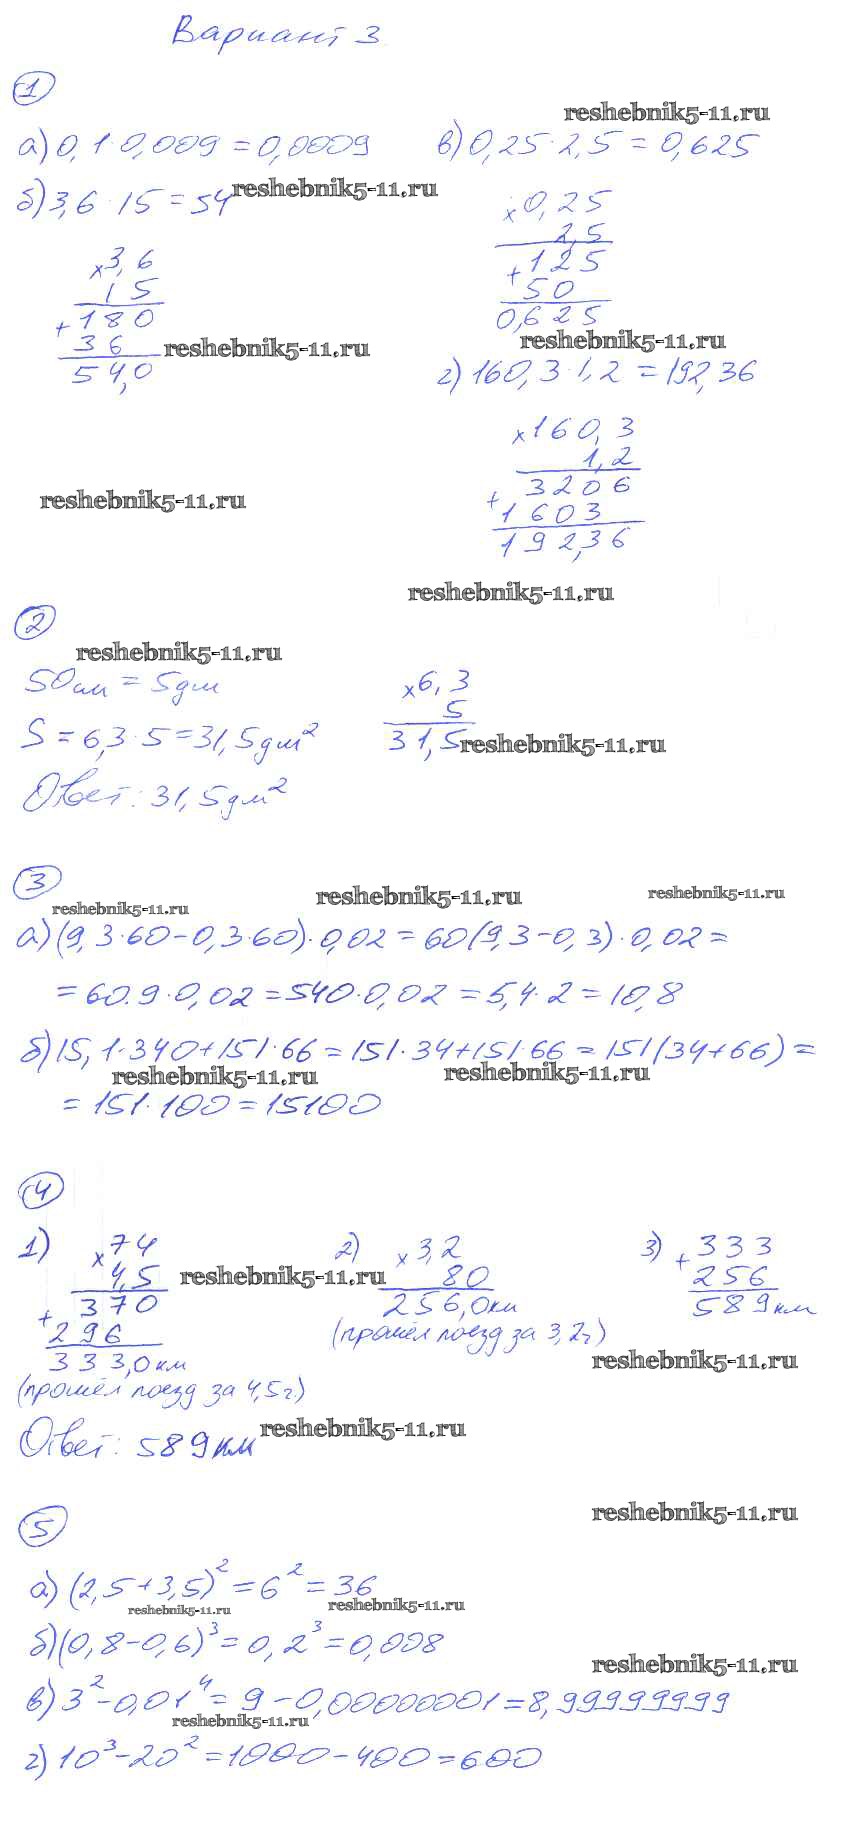 Вариант 3
1
reshebnik5-11.ru
а) 0,1·0,009=0,0009
в) 0,25·2,5=0,625
б) 3,6·15=54
reshebnik5-11.ru
× 3,6
15
+ 180
36
54,0
reshebnik5-11.ru
× 0,25
2,5
+ 125
50
0,625
reshebnik5-11.ru
г) 160,3·1,2=192,36
× 160,3
1,2
+ 3206
1603
192,36
reshebnik5-11.ru
reshebnik5-11.ru
2
reshebnik5-11.ru
50см = 5дм
× 6,3
5
31,5
S = 6,3·5=31,5дм²
reshebnik5-11.ru
Ответ: 31,5дм²
3
reshebnik5-11.ru
reshebnik5-11.ru
reshebnik5-11.ru
а) (9,3·60-0,3·60)·0,02=60(9,3-0,3)·0,02=
=60·9·0,02=540·0,02=5,4·2=10,8
б) 15,1·340+151·66=151·34+151·66=151(34+66)=
reshebnik5-11.ru
reshebnik5-11.ru
=151·100=15100
4
1)
× 74
4,5
+ 370
296
333,0км
(прошёл поезд за 4,5г)
reshebnik5-11.ru
2)
× 3,2
80
256,0км
(прошёл поезд за 3,2г)
3)
+ 333
256
589км
reshebnik5-11.ru
Ответ: 589км
reshebnik5-11.ru
reshebnik5-11.ru
5
а) (2,5+3,5)²=6²=36
reshebnik5-11.ru
reshebnik5-11.ru
б) (0,8-0,6)³=0,2³=0,008
reshebnik5-11.ru
в) 3²-0,01⁴=9-0,00000001=8,99999999
reshebnik5-11.ru
г) 10³-20²=1000-400=600